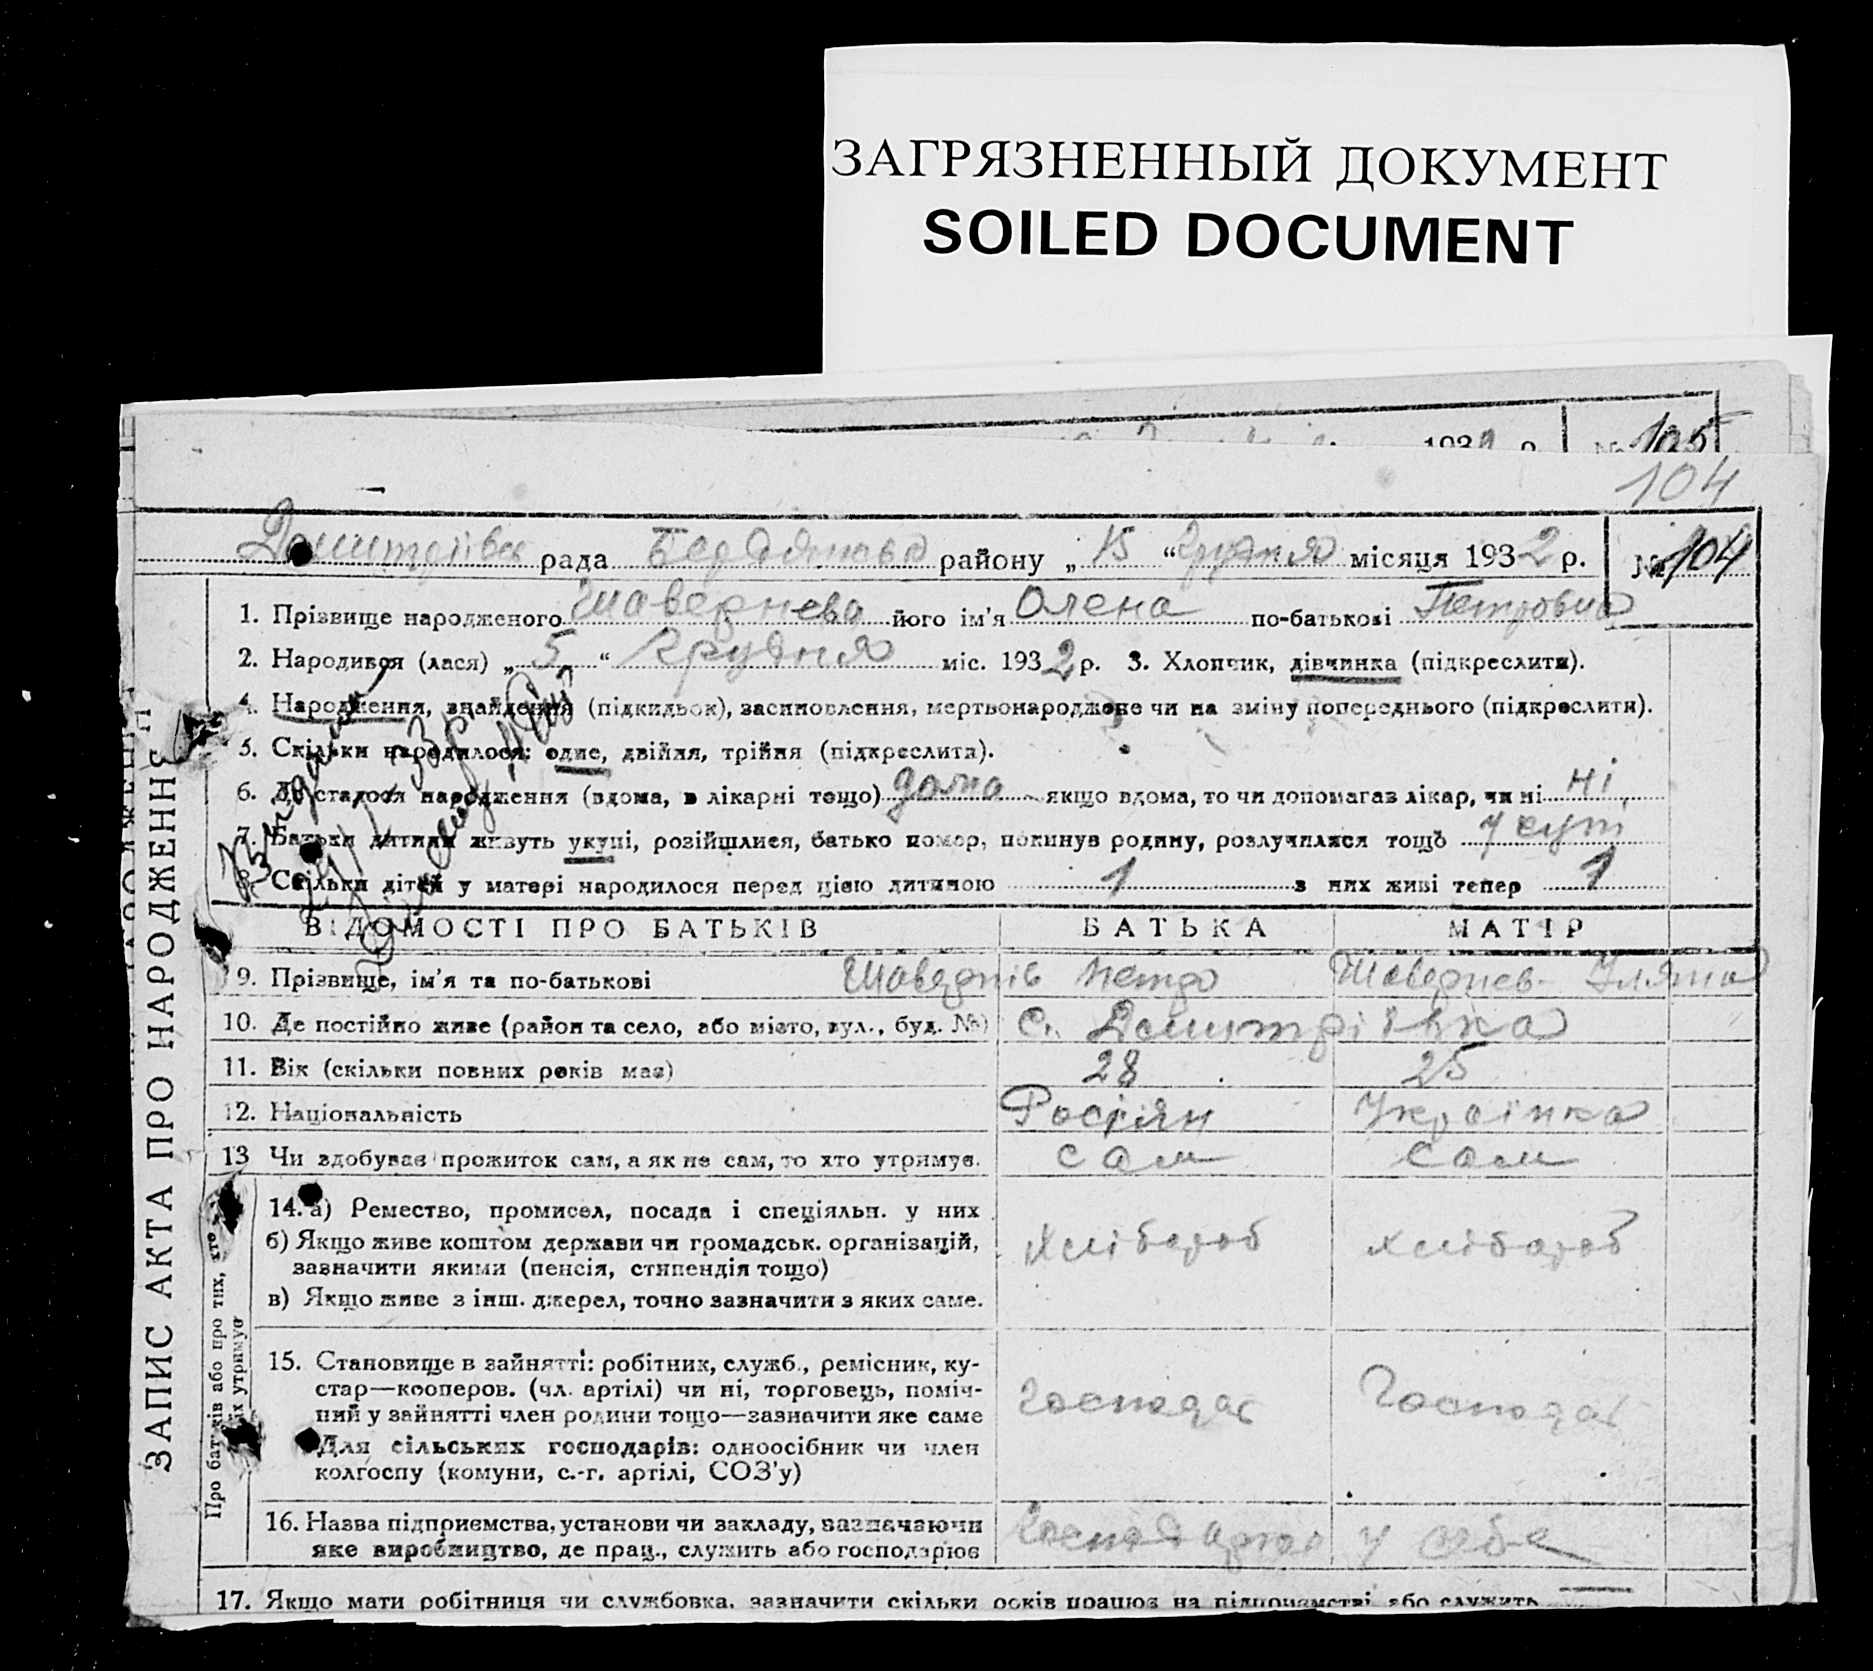 ЗАГРЯЗНЕННЫЙ ДОКУМЕНТ
SOILED DOCUMENT
193 р. № 105
104
рада район у „ 15 “ грудня місяця 1932 р. № 104
1. Прізвище народженого Шавернева його ім'я Олена по-батькові Петровна
2. Народився (лася) „ 5 “ Грудня міс. 1932 р. 3. Хлопчик, дівчинка (підкреслити).
4. Народження, знайдення (підкидьок), засиновлення, мертвонароджене чи на зміну попереднього (підкреслити).
5. Скільки народилося: одне, двійня, трійня (підкреслити).
6. Де сталося народження (вдома, в лікарні тощо) дома якщо вдома, то чи допомагав лікар, чи ні ні
7. Батьки дитини живуть укупі, розійшлися, батько помер, покинув родину, розлучилися тощо укупі
8. Скільки дітей у матері народилося перед цією дитиною 1 з них живі тепер 1
ВІДОМОСТІ ПРО БАТЬКІВ БАТЬКА МАТІР
9. Прізвище, ім'я та по-батькові Шавернів Петро Шавернев Уляна
10. Де постійно живе (район та село, або місто, вул., буд. №) С. Демитрівка
11. Вік (скільки повних років має) 28 25
12. Національність Росіян Українка
13 Чи здобуває прожиток сам, а як не сам, то хто утримує. сам сам
14. а) Ремество, промисел, посада і спеціяльн. у них
б) Якщо живе коштом держави чи громадськ. організацій,
зазначити якими (пенсія, стипендія тощо)
Хлібороб хлібороб
в) Якщо живе з інш. джерел, точно зазначити з яких саме.
15. Становище в зайнятті: робітник, служб., ремісник, ку-
стар—кооперов. (чл. артілі) чи ні, торговець, поміч-
ний у зайнятті член родини тощо—зазначити яке саме
Господар Господар
Для сільських господарів: одноосібник чи член
колгоспу (комуни, с.-г. артілі, СОЗ'у)
16. Назва підприємства, установи чи закладу, зазначаючи
яке виробництво, де прац., служить або господарює
у себе
17. Якщо мати робітниця чи службовка, зазначити скільки років працює на підприємстві або служить
ЗАПИС АКТА ПРО НАРОДЖЕННЯ
Про батьків або про тих, хто
їх утримує